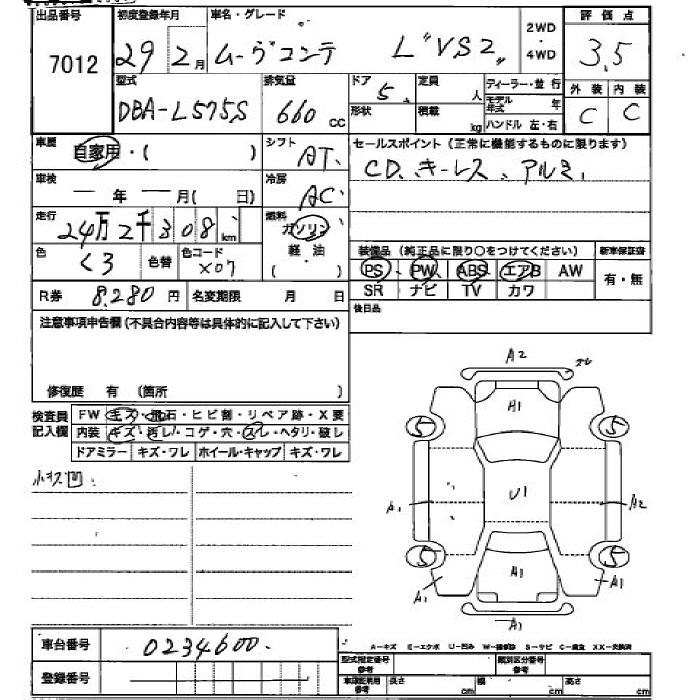 出品番号 初度登録年月 車名・グレード 2WD・4WD 評価点
7012 29 2月 ムーヴコンテ L"VS2" 3.5
型式 排気量 ドア 定員 人 ディーラー・並行 外装 内装
DBA-L575S 660cc 5 形状 積載 kg モデル年式 年 C C
ハンドル 左・右
車歴 自家用・( ) シフト AT セールスポイント(正常に機能するものに限ります)
車検 ー年ー月(日) 冷房 AC CD、キーレス、アルミ
走行 24万2千308km 燃料 ガソリン 軽油
色 くろ 色替 色コード X07 装備品(純正品に限り○をつけてください) 新車保証書
PS PW ABS エアB AW 有・無
R券 8,280円 名変期限 月 日 SR ナビ TV カワ
注意事項申告欄(不具合内容等は具体的に記入して下さい) 後日品
修復歴 有 (箇所 )
検査員記入欄 FW キズ・飛石・ヒビ割・リペア跡・X要
内装 キズ・汚レ・コゲ・穴・スレ・ヘタリ・破レ
ドアミラー キズ・ワレ ホイール・キャップ キズ・ワレ
小キズ凹
A2
A1
5 5
A1 U1 A2
5 5
A1 A1 A1
A1
車台番号 0234600
A-キズ E-エクボ U-凹み W-補修跡 S-サビ C-腐食 XX-交換済
登録番号
型式指定番号 参考 類別区分番号 参考
車庫証明用 参考 長さ cm 幅 cm 高さ cm